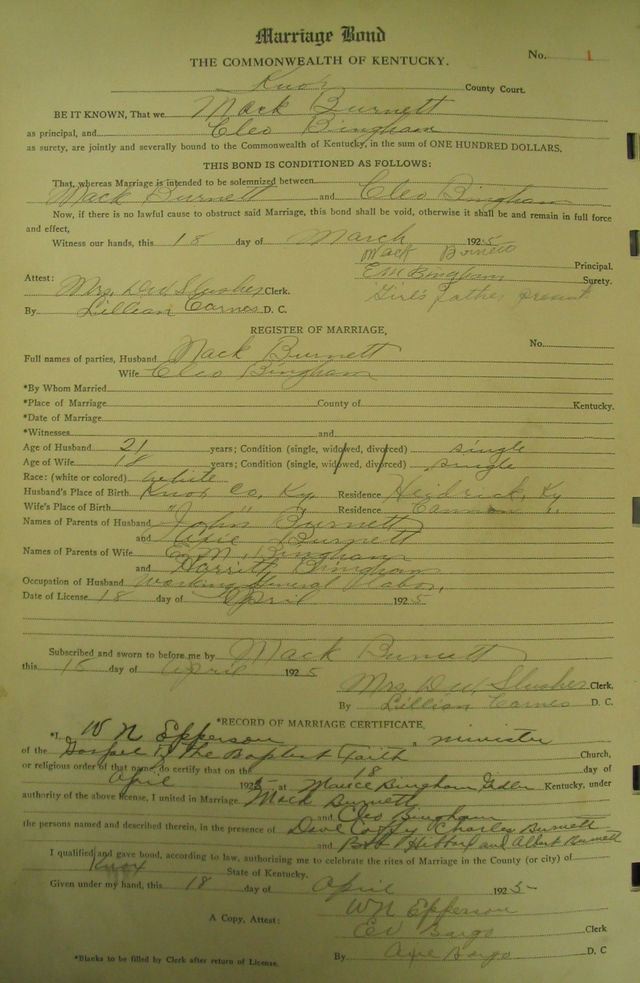 Marriage Bond
THE COMMONWEALTH OF KENTUCKY.
No. 1
Knox County Court.
BE IT KNOWN, That we Mack Burnett
as principal, and Cleo Bingham
as surety, are jointly and severally bound to the Commonwealth of Kentucky, in the sum of ONE HUNDRED DOLLARS.
THIS BOND IS CONDITIONED AS FOLLOWS:
That, whereas Marriage is intended to be solemnized between
Mack Burnett and Cleo Bingham
Now, if there is no lawful cause to obstruct said Marriage, this bond shall be void, otherwise it shall be and remain in full force
and effect,
Witness our hands, this 18 day of March 1925
Mack Burnett
Principal.
E M Bingham
Surety.
Girl's father present
Attest:
Mrs. D W Slusher Clerk.
By Lillian Carnes D. C.
REGISTER OF MARRIAGE,
No.
Full names of parties, Husband Mack Burnett
Wife Cleo Bingham
*By Whom Married
*Place of Marriage County of Kentucky.
*Date of Marriage
*Witnesses and
Age of Husband 21 years; Condition (single, widowed, divorced) single
Age of Wife 18 years; Condition (single, widowed, divorced) single
Race: (white or colored) white
Husband's Place of Birth Knox Co, Ky, Residence Heidrick, Ky
Wife's Place of Birth " " Residence Cannon
Names of Parents of Husband John Burnett
and Burnett
Names of Parents of Wife E. M. Bingham
and Harriett Bingham
Occupation of Husband Working General labor,
Date of License 18 day of April 1925
Subscribed and sworn to before me by Mack Burnett
this 18 day of April 1925
Mrs. D W Slusher Clerk,
By Lillian Carnes D. C.
*RECORD OF MARRIAGE CERTIFICATE,
*I, W N Epperson, minister
of the Gospel in The Baptist Faith Church,
or religious order of that name, do certify that on the 18 day of
April 1925 at Bingham Kentucky, under
authority of the above license, I united in Marriage Mack Burnett
and Cleo Bingham
the persons named and described therein, in the presence of Dave Charles Burnett
and and Albert Burnett
I qualified and gave bond, according to law, authorising me to celebrate the rites of Marriage in the County (or city) of
Knox State of Kentucky.
Given under my hand, this 18 day of April 1925
W N Epperson
A Copy, Attest: E V Bargo Clerk
By Bargo D. C
*Blanks to be filled by Clerk after return of License.